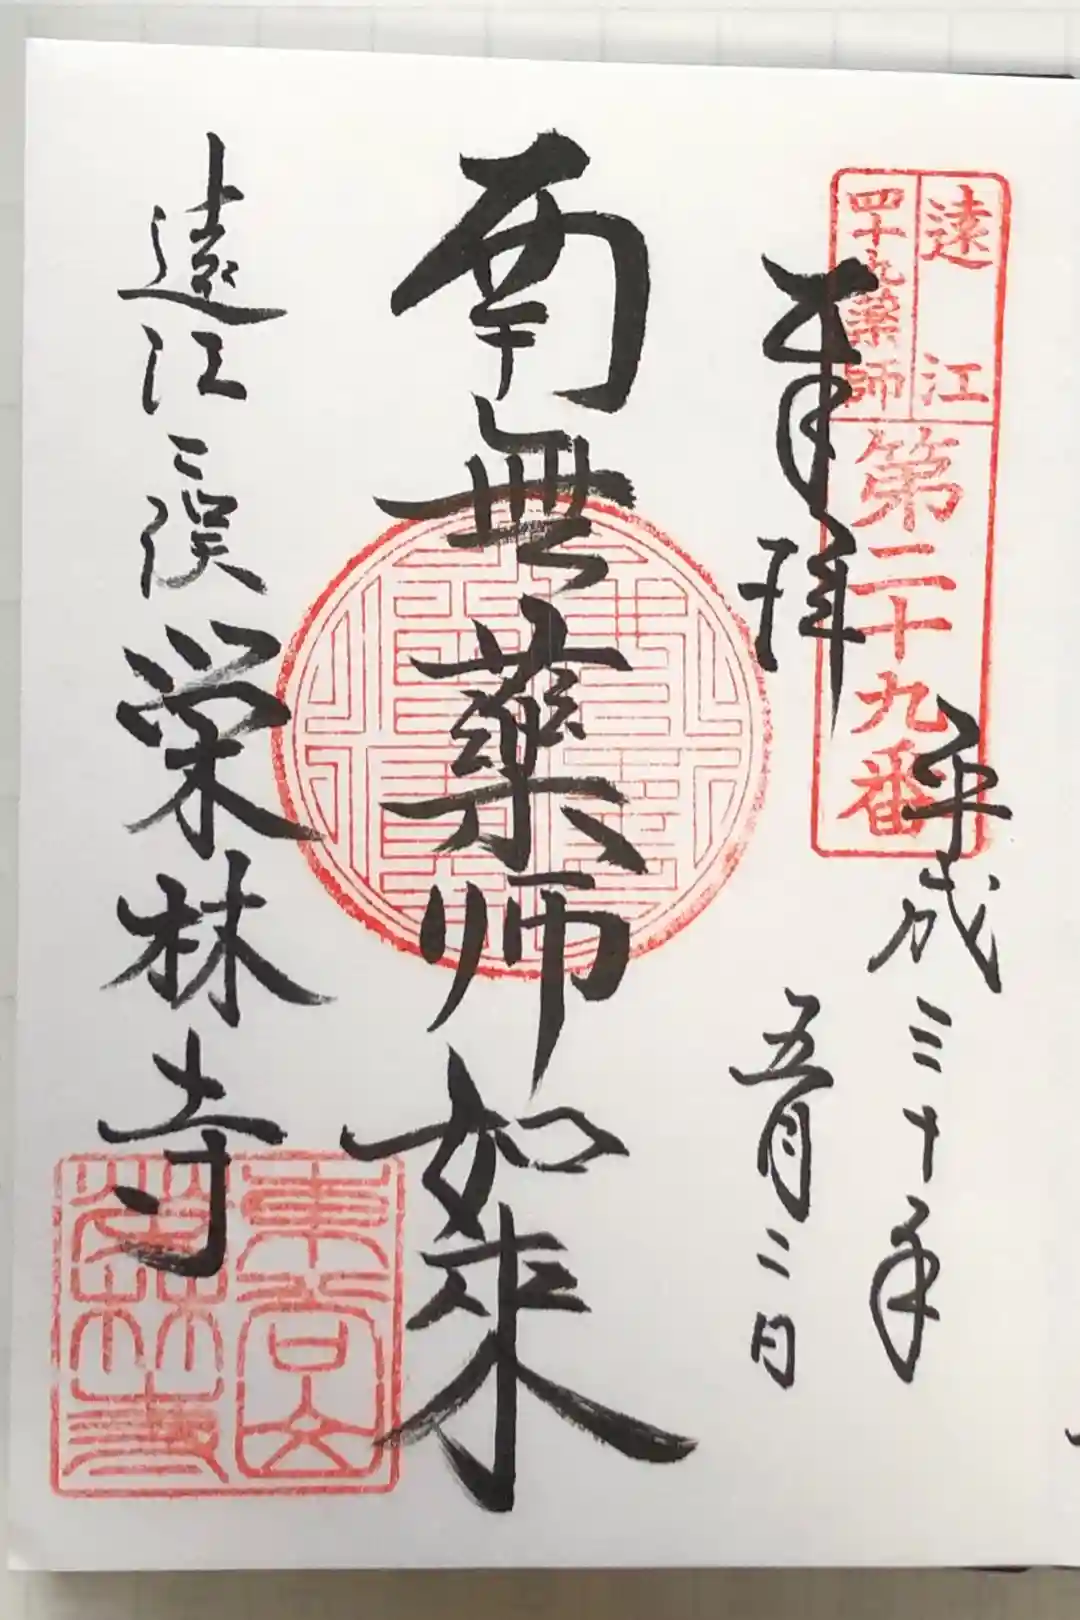 遠江
四十九薬師
第二十九番
奉拝
平成三十年
五月二日
南無薬師如来
遠江二俣 栄林寺
榮林寺